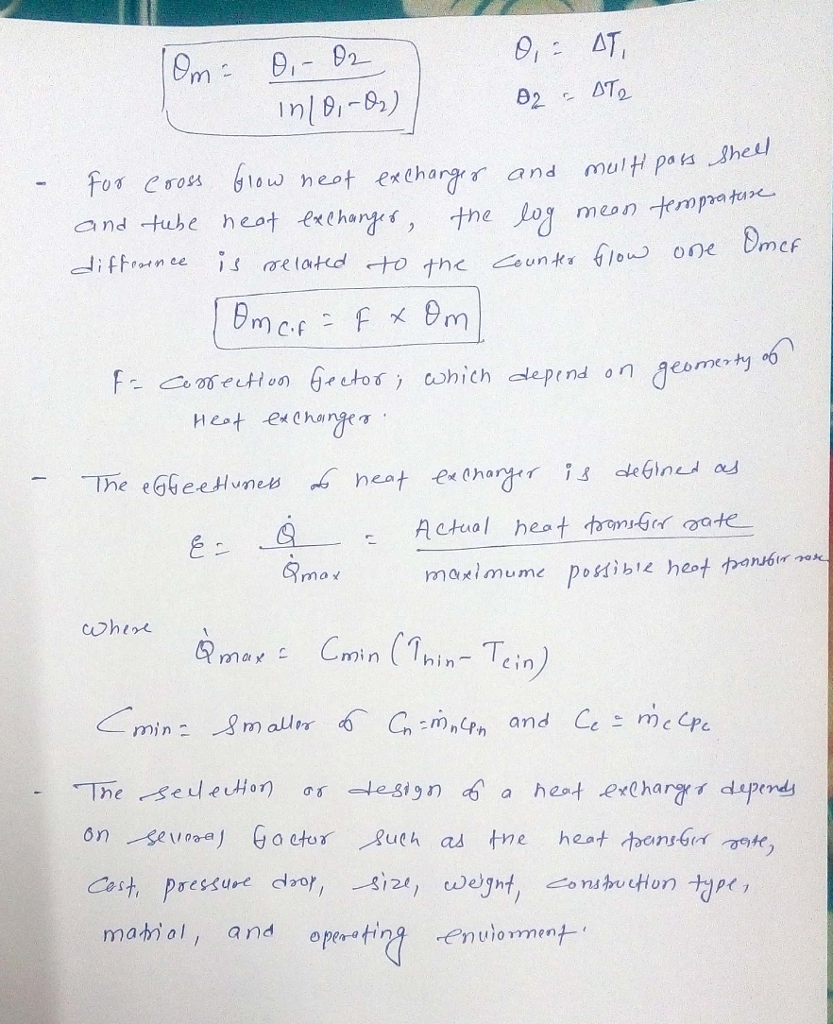 θm = θ1 - θ2 / ln(θ1-θ2)
θ1 = ΔT1
θ2 = ΔT2
- For cross flow heat exchanger and multi pass shell
and tube heat exchanger, the log mean temprature
difference is related to the counter flow one θmcF
θm c.f = F x θm
F = correction fector; which depend on geomerty of
Heat exchanger.
- The effeectiuness of heat exchanger is defined as
ε = Q̇ / Q̇max = Actual heat transfer rate / maximume possible heat transfer rate
where
Q̇max = Cmin (Thin - Tcin)
Cmin = Smaller of Ch = ṁhCph and Cc = ṁcCpc
- The selection or design of a heat exchanger depends
on several factor such as the heat transfer rate,
Cost, pressure drop, size, weight, construction type,
matrial, and operating enviornment.